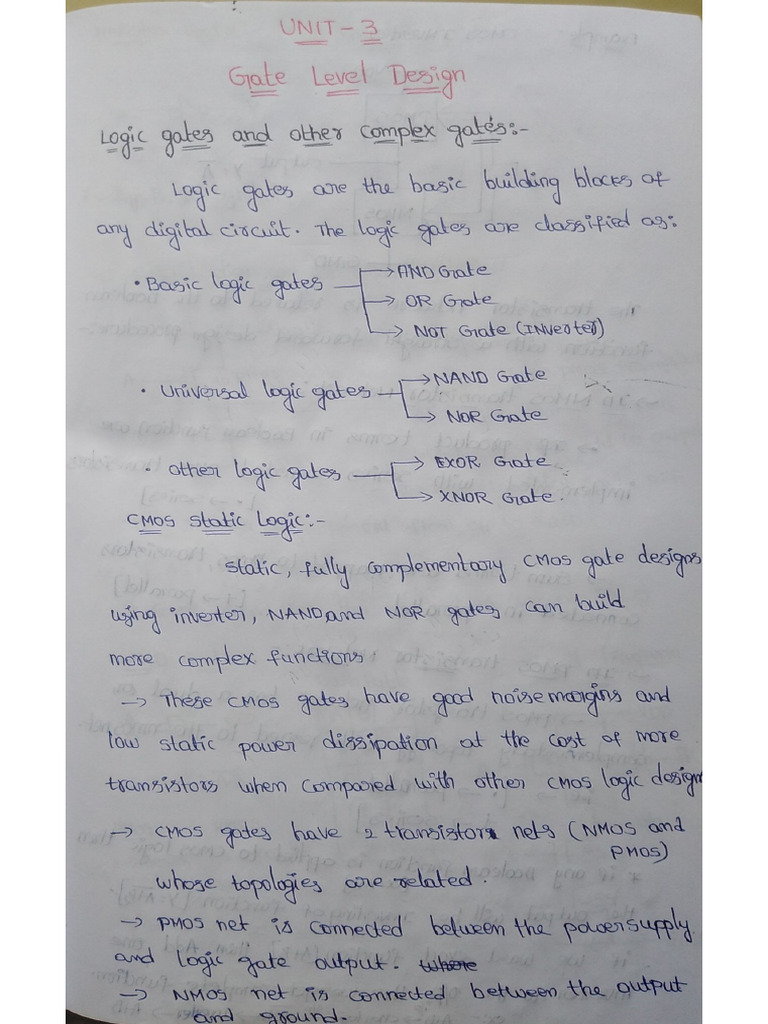 UNIT - 3
Gate Level Design
Logic gates and other complex gates:-
Logic gates are the basic building blocks of
any digital circuit. The logic gates are classified as:
• Basic logic gates → AND Gate
→ OR Gate
→ NOT Gate (INverter)
• Universal logic gates → NAND Gate
→ NOR Gate
• Other logic gates → EXOR Gate
→ XNOR Gate.
CMOS Static Logic:-
Static, fully complementary CMOS gate designs
using inverter, NAND and NOR gates can build
more complex functions
→ These CMOS gates have good noise margins and
low static power dissipation at the cost of more
transistors when compared with other CMOS logic design
→ CMOS gates have 2 transistor nets (NMOS and
PMOS)
whose topologies are related.
→ PMOS net is connected between the power supply
and logic gate output. where
→ NMOS net is connected between the output
and ground.